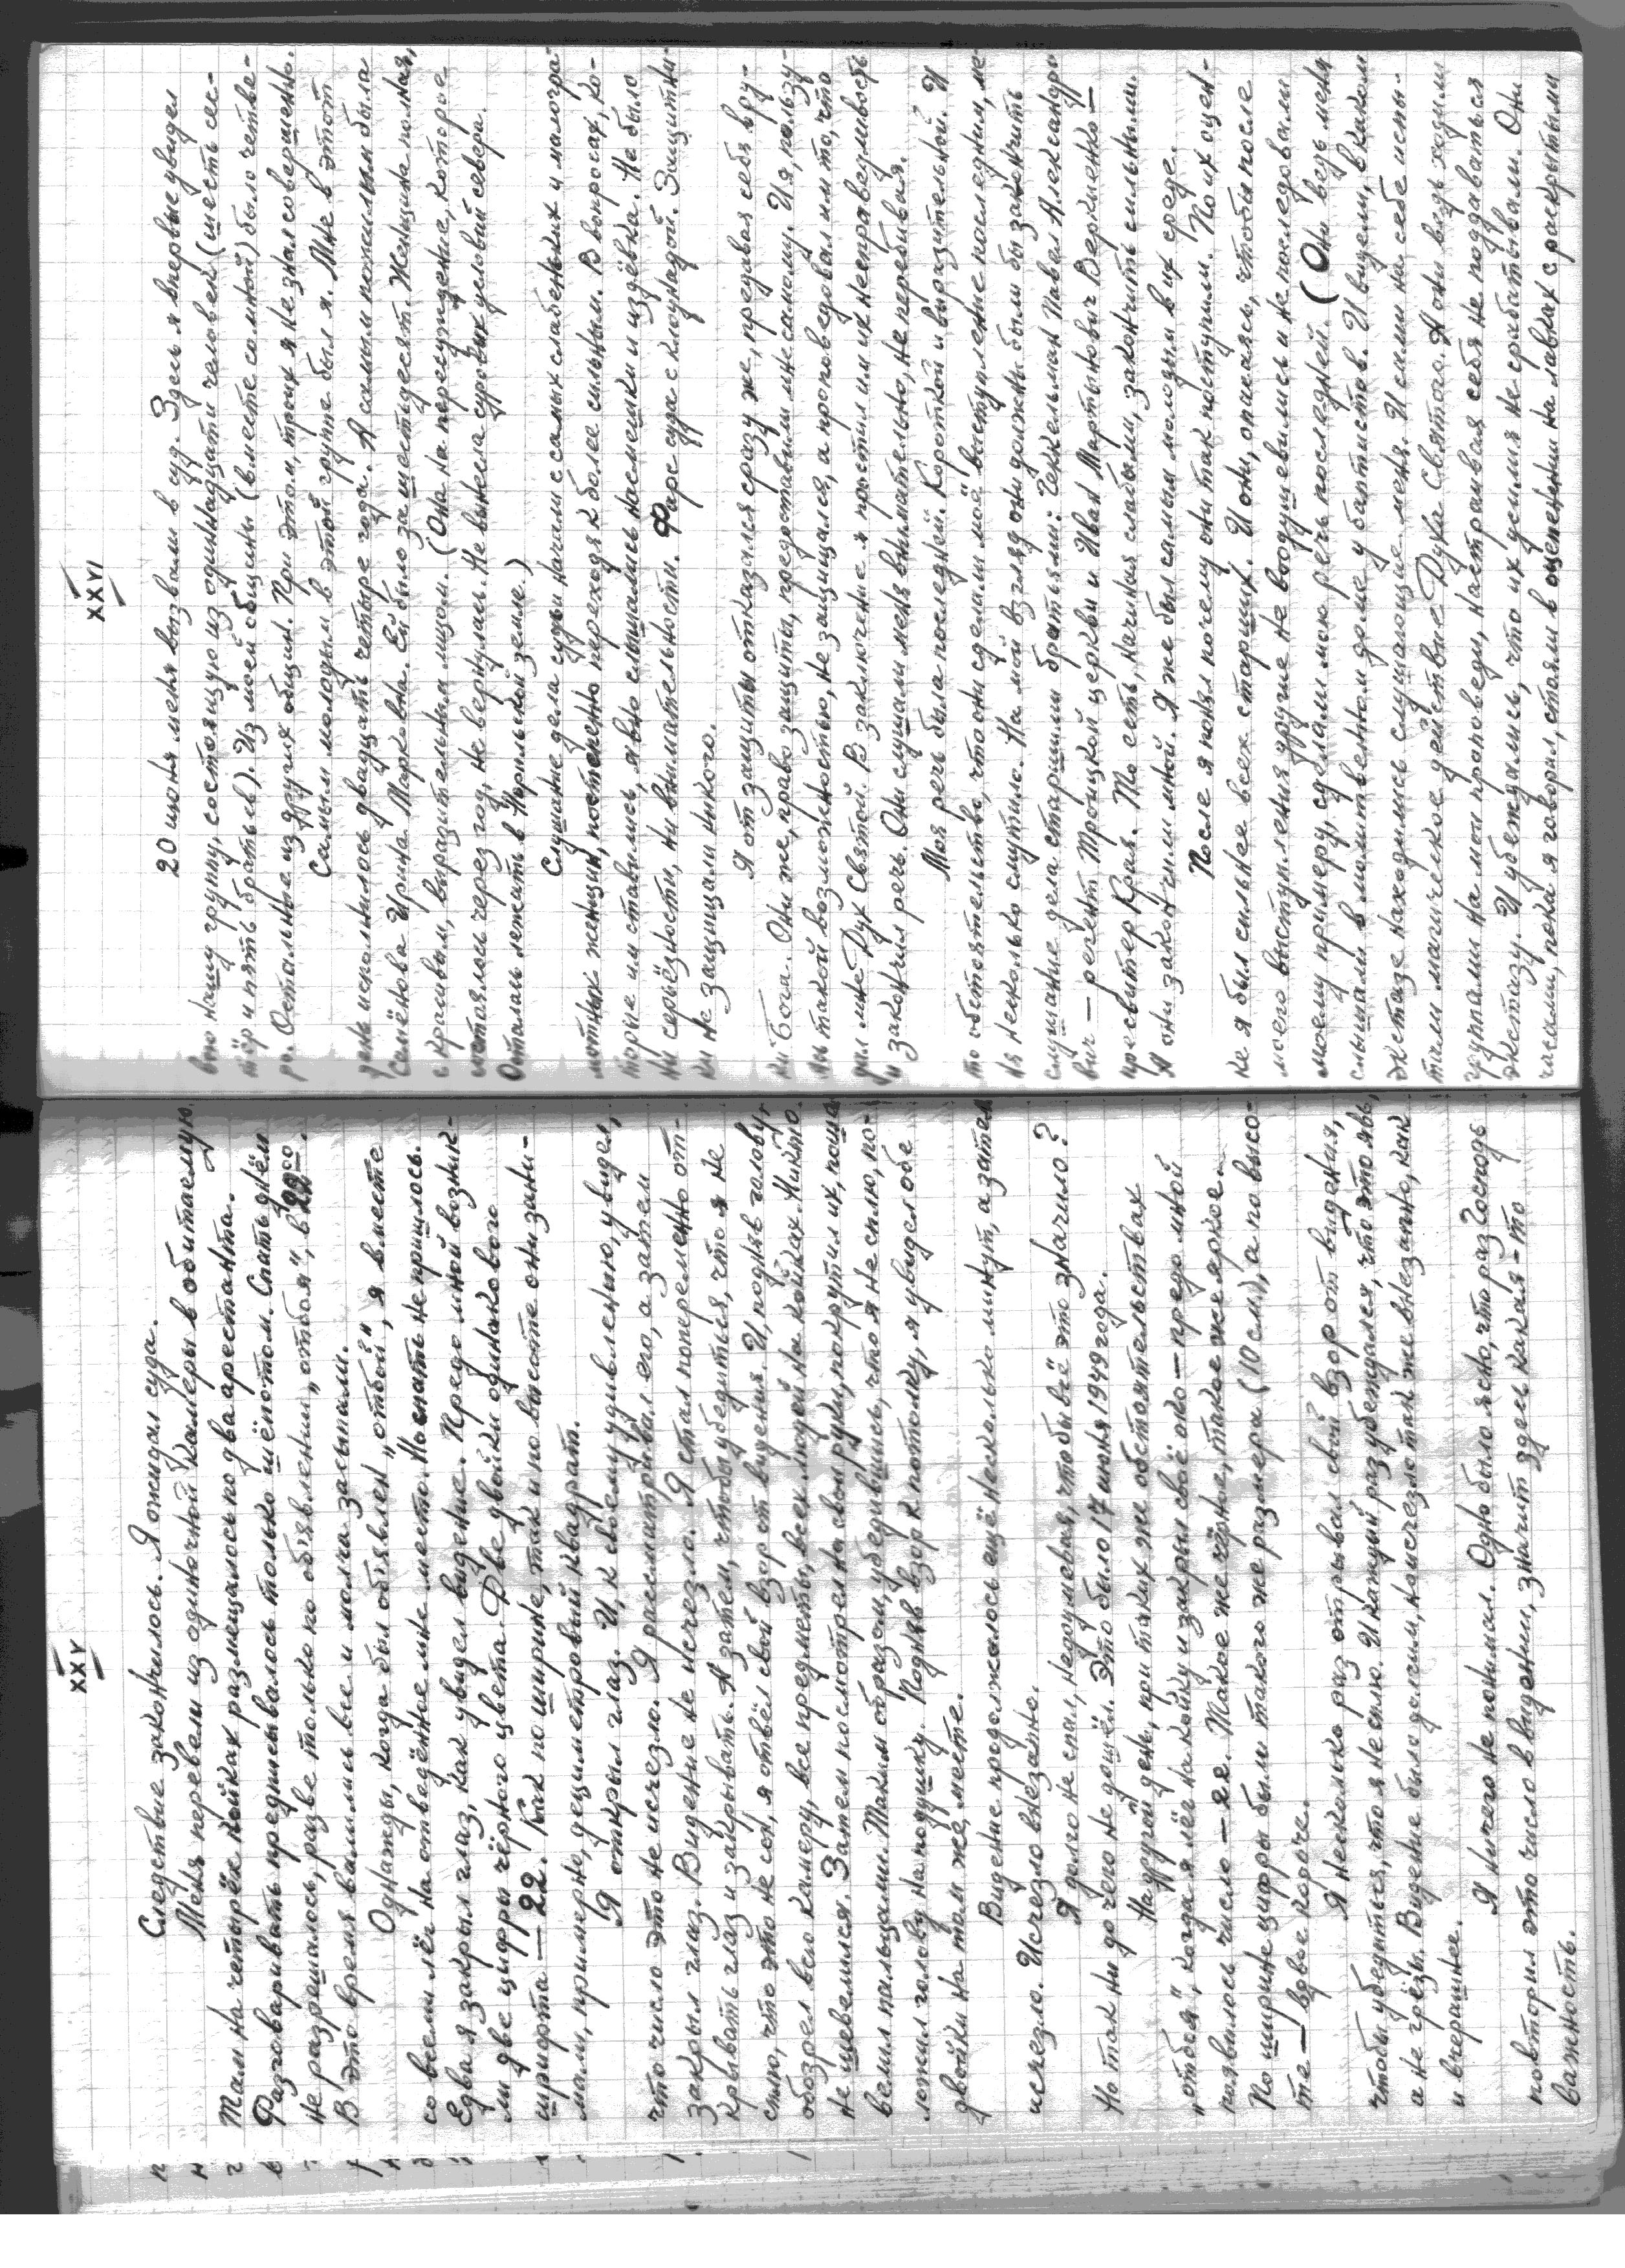 XXV
Следствие закончилось. Я ожидал суда.
Меня перевели из одиночной камеры в обитаемую.
Там на четырёх койках размещалось по два арестанта.
Разговаривать предписывалось только шёпотом. Спать днём
не разрешалось, разве только по объявлении „отбоя", в 22⁰⁰.
В это время валились все и молча засыпали.
Однажды, когда был объявлен „отбой", я вместе
со всеми лёг на отведённое мне место. Но спать не пришлось.
Едва я закрыл глаз, как увидел видение. Предо мной возник-
ли две цифры чёрного цвета. Две двойки одинакового
шрифта — 22. Как по ширине, так и по высоте они зани-
мали, примерно, дециметровый квадрат.
Я открыл глаз. И, к своему удивлению, увидел,
что число это не исчезло. Я рассматривал его, а затем
закрыл глаз. Видение не исчезло. Я стал попеременно от-
крывать глаз и закрывать. А затем, чтобы убедиться, что я не
сплю, что это не сон, я отвёл свой взор от видения. И, подняв голову,
обозрел всю камеру, все предметы, всех людей на койках. Никто
не шевелился. Затем посмотрел на свои руки, покрутил их, поше-
велил пальцами. Таким образом, убедившись, что я не сплю, по-
ложил голову на подушку. Подняв взор к потолку, я увидел обе
двойки на том же месте.
Видение продолжалось ещё несколько минут, а затем
исчезло. Исчезло внезапно.
Я долго не спал, недоумевая, что бы всё это значило?
Но так ни до чего не дошёл. Это было 17 июня 1949 года.
На другой день, при таких же обстоятельствах
„отбоя", когда я лёг на койку и закрыл своё око — предо мной
появилось число — 22. Такое же чёрное, такое же яркое.
По ширине цифры были такого же размера (10 см), а по высо-
те — вдвое короче.
Я несколько раз отрывал свой взор от видения,
чтобы убедиться, что я не сплю. И каждый раз убеждался, что это явь,
а не грёзы. Видение было долгим, но исчезло так же внезапно, как
и вчерашнее.
Я ничего не понимал. Одно было ясно, что раз Господь
повторил это число в видении, значит здесь какая-то
важность.
XXVI
20 июня меня вызвали в суд. Здесь я впервые увидел
всю нашу группу, состоящую из одиннадцати человек (шесть сес-
тёр и пять братьев). Из моей общины (вместе со мной) было четве-
ро. Остальные из других общин. При этом, троих я не знал совершенно.
Самым молодым в этой группе был я. Мне в этот
день исполнилось двадцать четыре года. А самым пожилым была
Семёнова Ирина Марковна. Ей было за шестьдесят. Женщина полная,
с красивым, выразительным лицом. (Она на пересуждение, которое
состоялось через год, не вернулась. Не вынесла суровых условий севера.
Осталась лежать в Норильской земле.)
Слушание дела судьи начали с самых слабеньких и малогра-
мотных женщин, постепенно переходя к более сильным. В вопросах, ко-
торые им ставились, явно слышались насмешки и издёвка. Не было
ни серьёзности, ни внимательности. Фарс суда с клоунадой. Защитни-
ки не защищали никого.
Я от защиты отказался сразу же, предавая себя в ру-
ки Бога. Они же, право защиты, предоставили мне самому. И я, пользу-
ясь такой возможностью, не защищался, а проповедовал им то, что
дал мне Дух Святой. В заключение я простил им их несправедливость
и закончил речь. Они слушали меня внимательно, не перебивая.
Моя речь была последней. Короткой и выразительной. И
то обстоятельство, что они сделали моё выступление последним, ме-
ня несколько смутило. На мой взгляд они должны были бы закончить
слушание дела старшими братьями: Геккельман Павел Александро-
вич — регент Троицкой церкви и Иван Мартынович Веркиенко —
пресвитер Края. То есть, начиная слабыми, закончить сильными.
А они закончили мной. Я же был самым молодым в их среде.
После я понял почему они так поступили. По их оцен-
ке я был сильнее всех старших. И они, опасаясь, чтобы после
моего выступления другие не воодушевились и не последовали
моему примеру, сделали мою речь последней. (Они ведь меня
слышали в молитвенном доме у баптистов. И видели, в каком
экстазе находились слушающие меня. И сами на себе испы-
тали магическое действие Духа Святого. А они ведь ходили
группами на мои проповеди, настраивая себя не поддаваться
экстазу. И убеждались, что их усилия не срабатывали. Они
часами, пока я говорил, стояли в оцепенении на лавках с раскрытыми